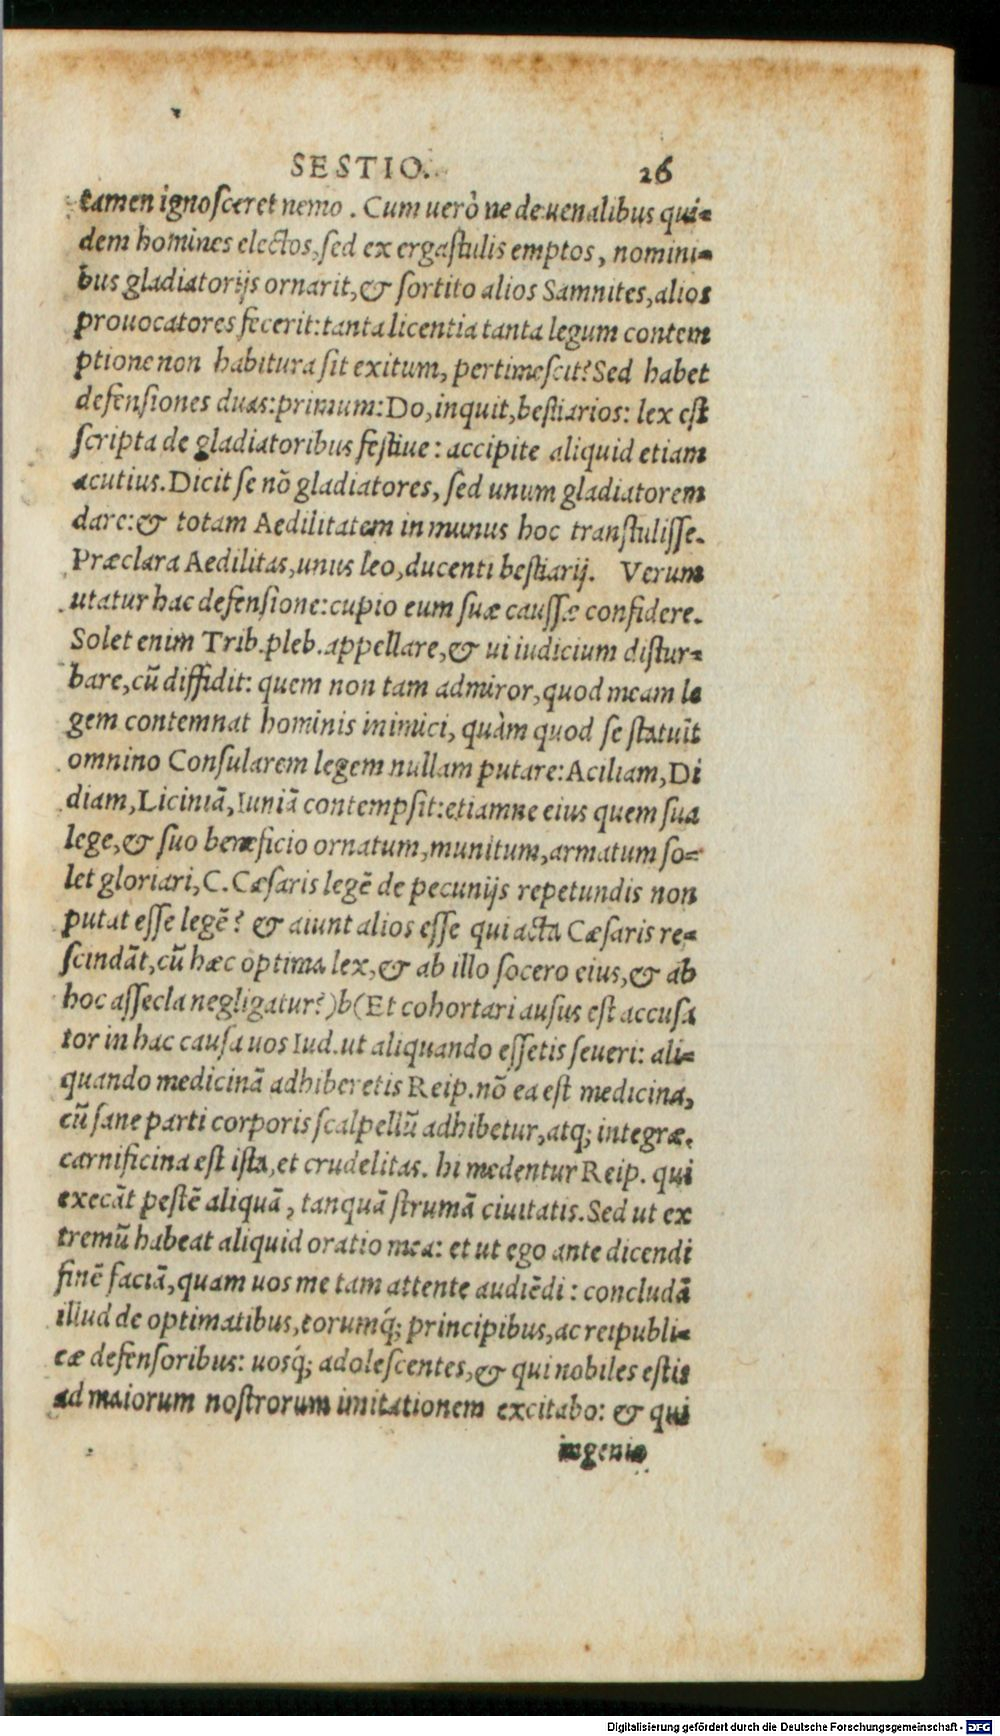 SESTIO. 26
tamen ignosceret nemo. Cum uerò ne de uenalibus qui-
dem homines electos, sed ex ergastulis emptos, nomini-
bus gladiatorijs ornarit, & sortito alios Samnites, alios
prouocatores fecerit: tanta licentia tanta legum contem
ptione non habitura sit exitum, pertimescit? Sed habet
defensiones duas: primum: Do, inquit, bestiarios: lex est
scripta de gladiatoribus festiue: accipite aliquid etiam
acutius. Dicit se nõ gladiatores, sed unum gladiatorem
dare: & totam Aedilitatem in munus hoc transtulisse.
Præclara Aedilitas, unus leo, ducenti bestiarij. Verum
utatur hac defensione: cupio eum suæ caussæ confidere.
Solet enim Trib. pleb. appellare, & ui iudicium distur-
bare, cũ diffidit: quem non tam admiror, quod meam le
gem contemnat hominis inimici, quàm quod se statuit
omnino Consularem legem nullam putare: Aciliam, Di
diam, Liciniã, Iuniã contempsit: etiamne eius quem sua
lege, & suo beneficio ornatum, munitum, armatum so-
let gloriari, C. Cæsaris legẽ de pecunijs repetundis non
putat esse legẽ? & aiunt alios esse qui acta Cæsaris re-
scindãt, cũ hæc optima lex, & ab illo socero eius, & ab
hoc assecla negligatur?)b(Et cohortari ausus est accusa
tor in hac causa uos Iud. ut aliquando essetis seueri: ali-
quando medicinã adhiberetis Reip. nõ ea est medicina,
cũ sane parti corporis scalpellũ adhibetur, atq; integræ.
carnificina est ista, et crudelitas. hi medentur Reip. qui
execãt pestẽ aliquã, tanquã strumã ciuitatis. Sed ut ex
tremũ habeat aliquid oratio mea: et ut ego ante dicendi
finẽ faciã, quam uos me tam attente audiẽdi: concludã
illud de optimatibus, eorumq́; principibus, ac reipubli-
cæ defensoribus: uosq́; adolescentes, & qui nobiles estis
ad maiorum nostrorum imitationem excitabo: & qui
ingenio
Digitalisierung gefördert durch die Deutsche Forschungsgemeinschaft - DFG